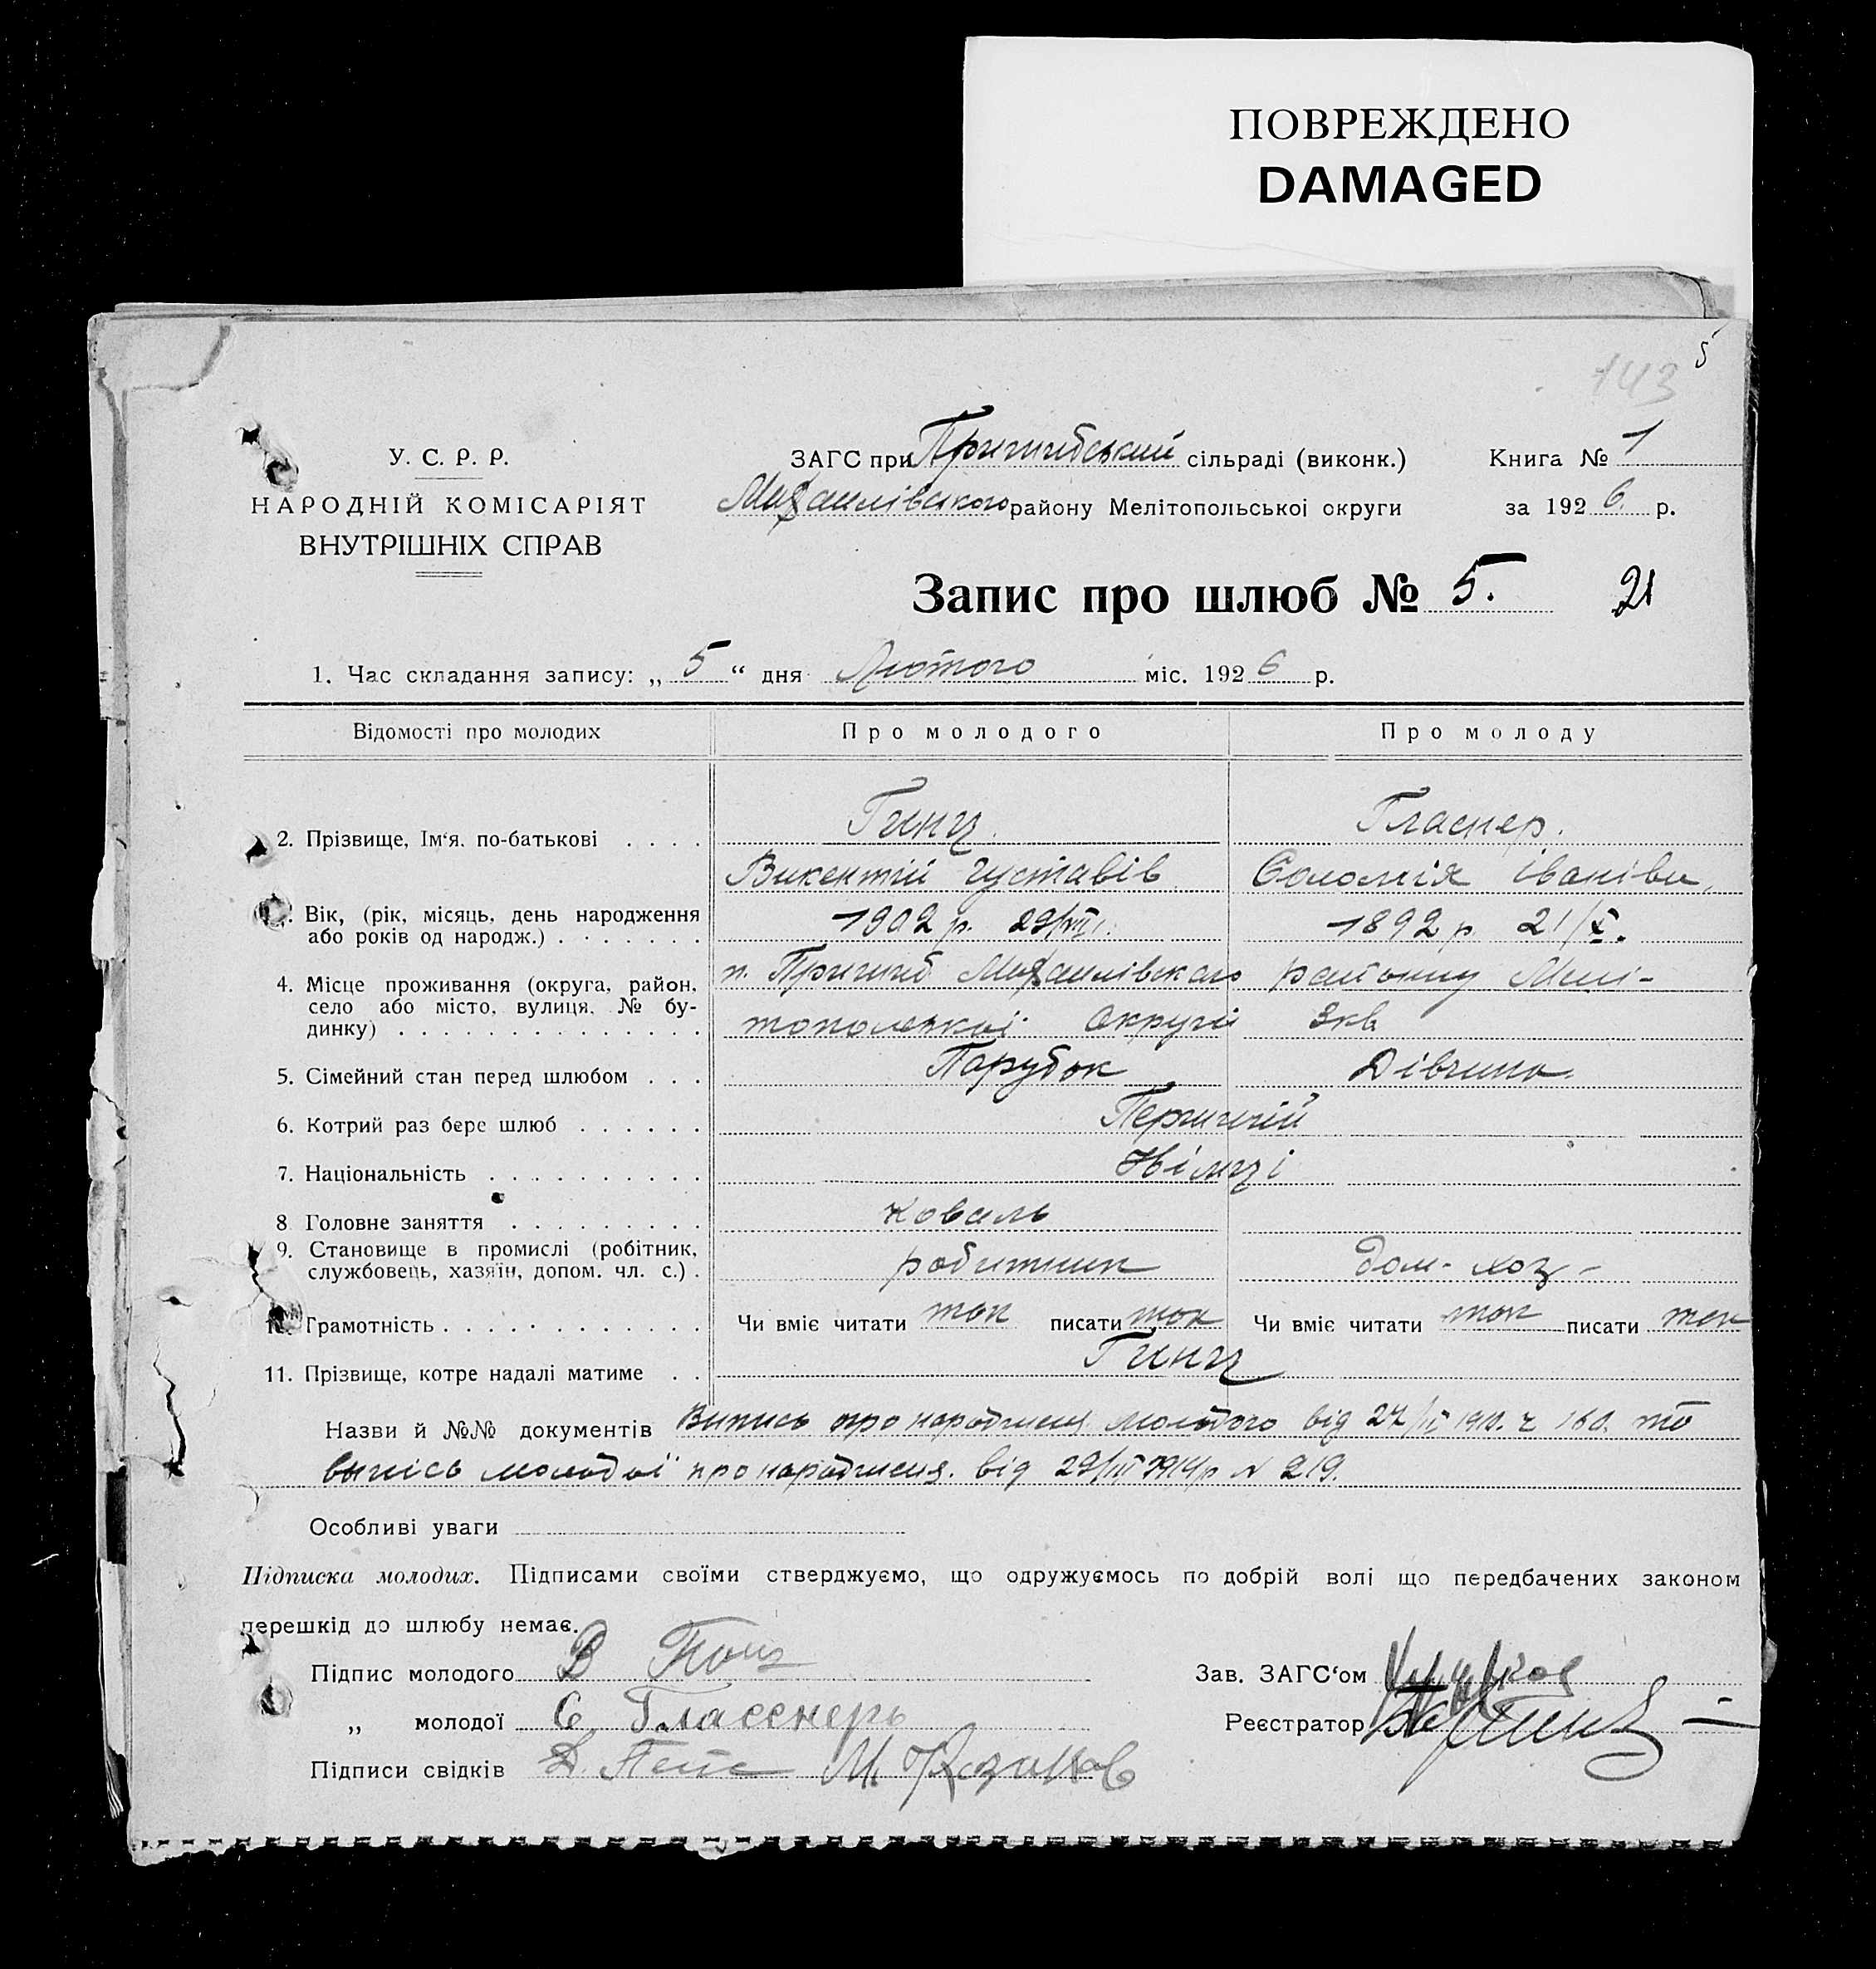 ПОВРЕЖДЕНО
DAMAGED
5
143
У. С. Р. Р.
НАРОДНІЙ КОМІСАРІЯТ
ВНУТРІШНІХ СПРАВ
ЗАГС при Пришибський сільраді (виконк.) Книга № 1
Михаилівского району Мелітопольськоі округи за 1926. р.
Запис про шлюб № 5. 21
1. Час складання запису: „5“ дня Лютого міс. 1926 р.
Відомості про молодих Про молодого Про молоду
2. Прізвище, Ім‘я. по-батькові . . . . Гинц. Гласнер.
Викентій Густавів Соломія іванівн.
Вік, (рік, місяць, день народження
або років од народж.) . . . . . . . 1902 р. 29/VIII. 1892 р 21/X.
4. Місце проживання (округа, район, п. Пришиб Михаилівского району Мелі-
село або місто, вулиця. № бу-
динку) . . . . . . . . . . . . . топольскоі Округи
5. Сімейний стан перед шлюбом . . . Парубок Дівчина.
6. Котрий раз бере шлюб . . . . . . Перший
7. Національність . . . . . . . . . . Німці
8 Головне заняття . . . . . . . . . коваль
9. Становище в промислі (робітник,
службовець, хазяїн, допом. чл. с.) . робитник дом-хоз-
Грамотність . . . . . . . . . . . . Чи вміє читати так писати так Чи вміє читати так писати так
11. Прізвище, котре надалі матиме . . Гинц
Назви й №№ документів Випись про народження молодого від 27/ 1910. ч 160. та
випісь молодоі про народження. від 29/III 1914 р N 219.
Особливі уваги
Підписка молодих. Підписами своїми стверджуємо, що одружуємось по добрій волі що передбачених законом
перешкід до шлюбу немає.
Підпис молодого В Зав. ЗАГС‘ом
„ молодої С. Гласснеръ Реєстратор
Підписи свідків М. Казаков